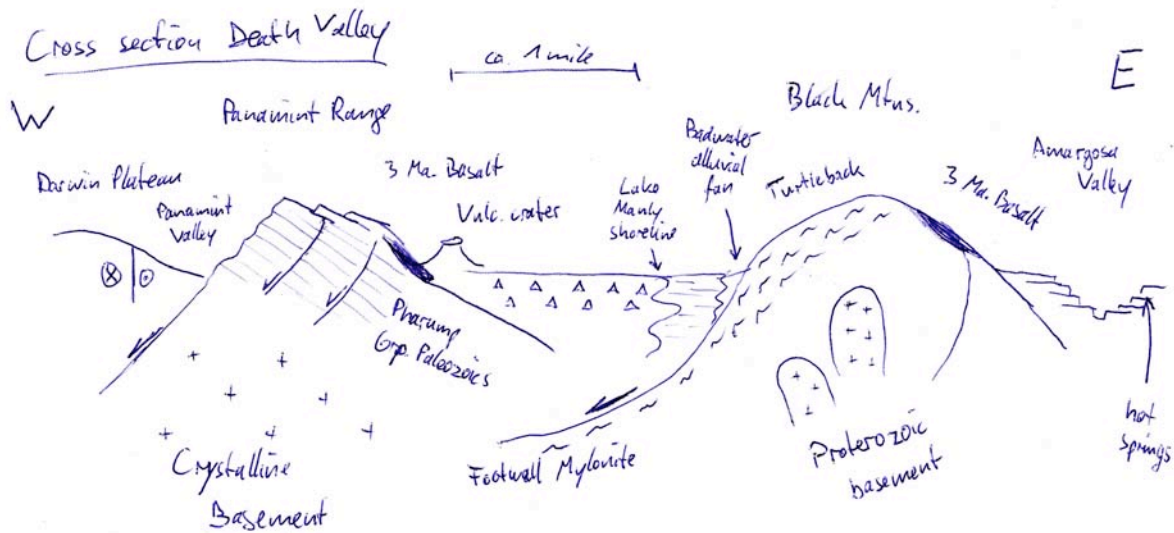 Cross section Death Valley
ca. 1 mile
W
E
Panamint Range
Black Mtns.
Darwin Plateau
Panamint
Valley
3 Ma. Basalt
Vulc. crater
Lake
Manly
shoreline
Badwater
alluvial
fan
Turtleback
3 Ma. Basalt
Amargosa
Valley
Pharump
Grp. Paleozoics
Crystalline
Basement
Footwall Mylonite
Proterozoic
basement
hot
springs